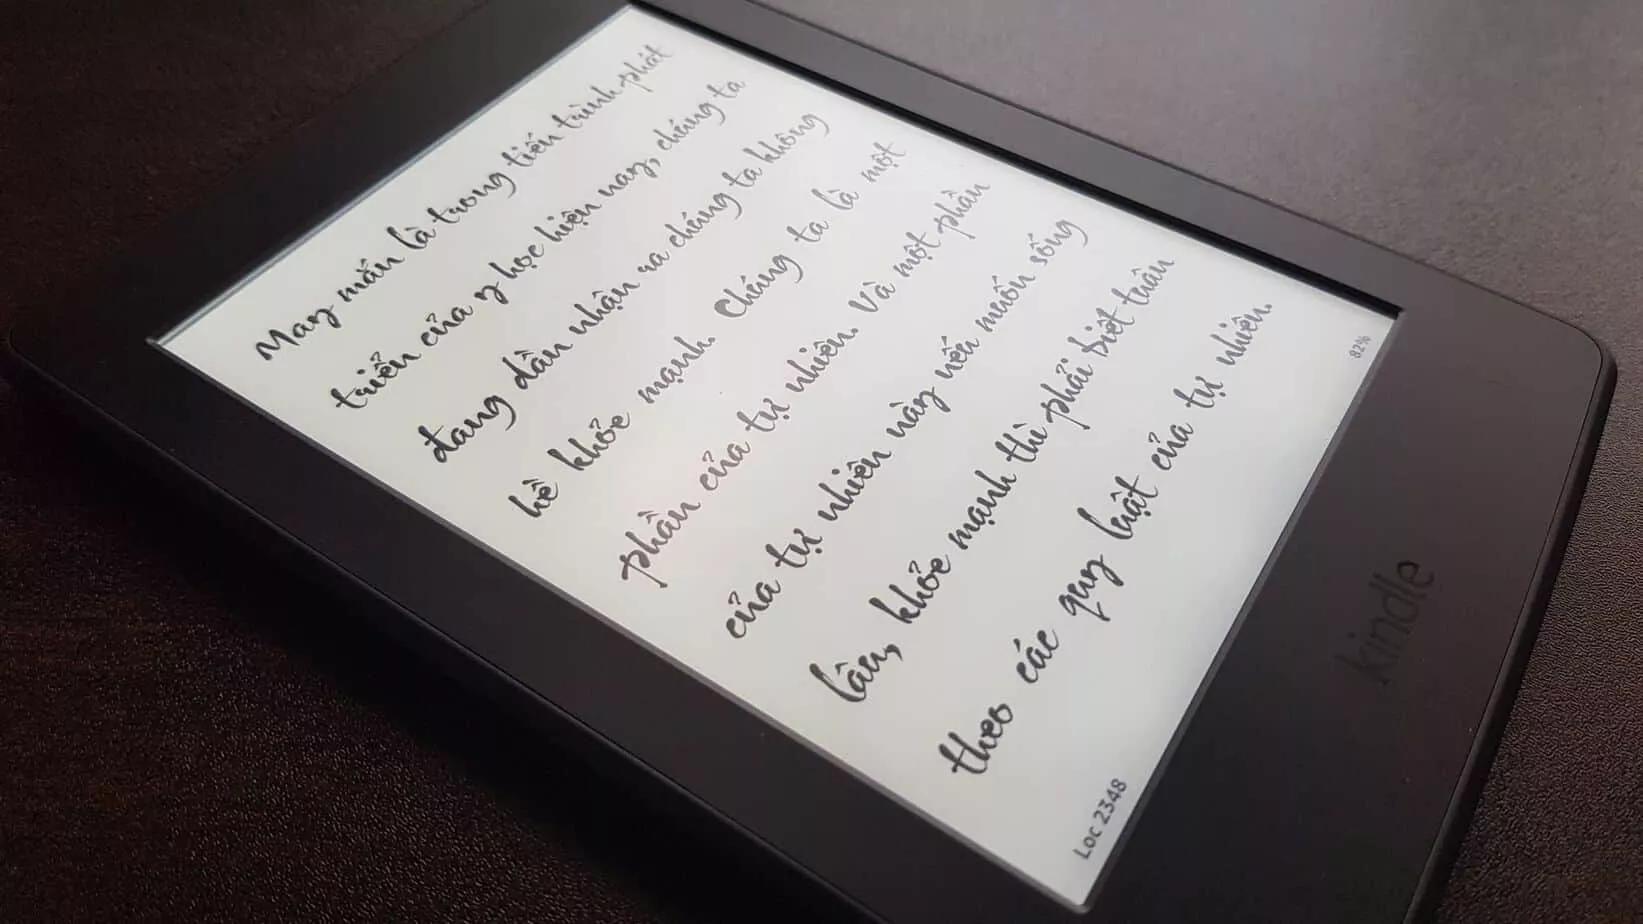 May mắn là trong tiến trình phát
triển của y học hiện nay, chúng ta
đang dần nhận ra chúng ta không
hề khỏe mạnh. Chúng ta là một
phần của tự nhiên. Và một phần
của tự nhiên này nếu muốn sống
lâu, khỏe mạnh thì phải biết tuân
theo các quy luật của tự nhiên.
Loc 2348 82%
kindle